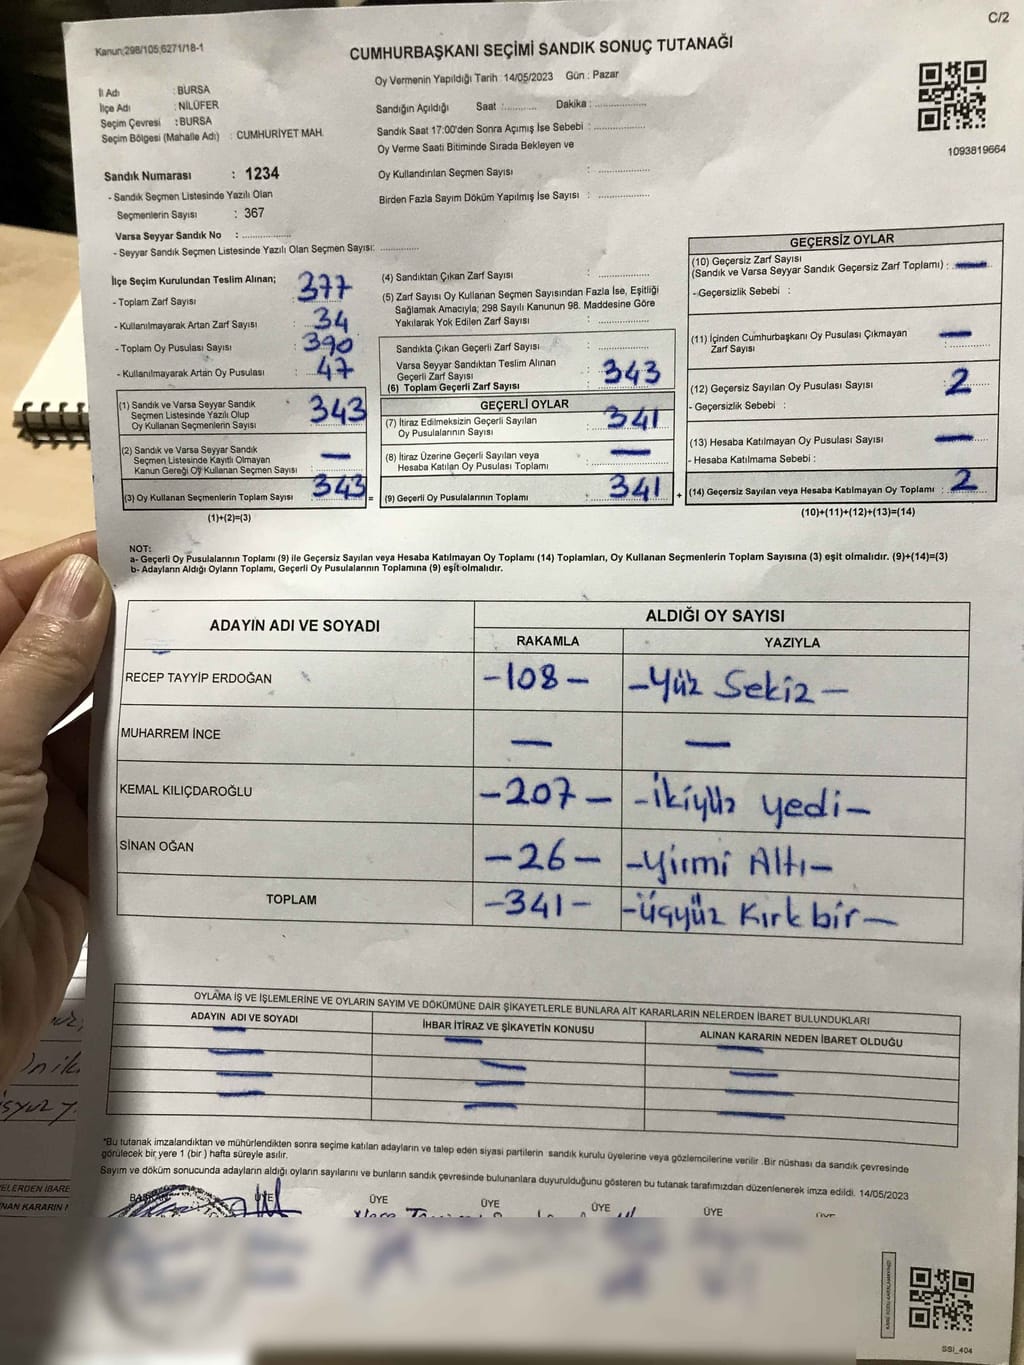 C/2
Kanun;298/105,6271/18-1
CUMHURBAŞKANI SEÇİMİ SANDIK SONUÇ TUTANAĞI
İl Adı : BURSA
İlçe Adı : NİLÜFER
Seçim Çevresi : BURSA
Seçim Bölgesi (Mahalle Adı) : CUMHURİYET MAH.
Sandık Numarası : 1234
- Sandık Seçmen Listesinde Yazılı Olan
Seçmenlerin Sayısı : 367
Varsa Seyyar Sandık No : ................
- Seyyar Sandık Seçmen Listesinde Yazılı Olan Seçmen Sayısı: .............
Oy Vermenin Yapıldığı Tarih : 14/05/2023 Gün : Pazar
Sandığın Açıldığı Saat :........... Dakika : .................
Sandık Saat 17:00'den Sonra Açımış İse Sebebi : .................
Oy Verme Saati Bitiminde Sırada Bekleyen ve
Oy Kullandırılan Seçmen Sayısı : .................
Birden Fazla Sayım Döküm Yapılmış İse Sayısı : .................
1093819664
İlçe Seçim Kurulundan Teslim Alınan;
- Toplam Zarf Sayısı : 377
- Kullanılmayarak Artan Zarf Sayısı : 34
- Toplam Oy Pusulası Sayısı : 390
- Kullanılmayarak Artan Oy Pusulası : 47
(1) Sandık ve Varsa Seyyar Sandık
Seçmen Listesinde Yazılı Olup
Oy Kullanan Seçmenlerin Sayısı : 343
(2) Sandık ve Varsa Seyyar Sandık
Seçmen Listesinde Kayıtlı Olmayan
Kanun Gereği Oy Kullanan Seçmen Sayısı : —
(3) Oy Kullanan Seçmenlerin Toplam Sayısı : 343 =
(1)+(2)=(3)
(4) Sandıktan Çıkan Zarf Sayısı : .................
(5) Zarf Sayısı Oy Kullanan Seçmen Sayısından Fazla İse, Eşitliği
Sağlamak Amacıyla; 298 Sayılı Kanunun 98. Maddesine Göre
Yakılarak Yok Edilen Zarf Sayısı : .................
Sandıkta Çıkan Geçerli Zarf Sayısı : .................
Varsa Seyyar Sandıktan Teslim Alınan
Geçerli Zarf Sayısı
(6) Toplam Geçerli Zarf Sayısı : 343
GEÇERLİ OYLAR
(7) İtiraz Edilmeksizin Geçerli Sayılan
Oy Pusulalarının Sayısı : 341
(8) İtiraz Üzerine Geçerli Sayılan veya
Hesaba Katılan Oy Pusulası Toplamı : —
(9) Geçerli Oy Pusulalarının Toplamı : 341 +
GEÇERSİZ OYLAR
(10) Geçersiz Zarf Sayısı
(Sandık ve Varsa Seyyar Sandık Geçersiz Zarf Toplamı) : —
- Geçersizlik Sebebi :
(11) İçinden Cumhurbaşkanı Oy Pusulası Çıkmayan
Zarf Sayısı : —
(12) Geçersiz Sayılan Oy Pusulası Sayısı : 2
- Geçersizlik Sebebi :
(13) Hesaba Katılmayan Oy Pusulası Sayısı : —
- Hesaba Katılmama Sebebi :
(14) Geçersiz Sayılan veya Hesaba Katılmayan Oy Toplamı : 2
(10)+(11)+(12)+(13)=(14)
NOT:
a- Geçerli Oy Pusulalarının Toplamı (9) ile Geçersiz Sayılan veya Hesaba Katılmayan Oy Toplamı (14) Toplamları, Oy Kullanan Seçmenlerin Toplam Sayısına (3) eşit olmalıdır. (9)+(14)=(3)
b- Adayların Aldığı Oyların Toplamı, Geçerli Oy Pusulalarının Toplamına (9) eşit olmalıdır.
ADAYIN ADI VE SOYADI ALDIĞI OY SAYISI
RAKAMLA YAZIYLA
RECEP TAYYİP ERDOĞAN -108- -Yüz Sekiz-
MUHARREM İNCE — —
KEMAL KILIÇDAROĞLU -207- -İkiyüz yedi-
SİNAN OĞAN -26- -Yirmi Altı-
TOPLAM -341- -Üçyüz Kırk bir-
OYLAMA İŞ VE İŞLEMLERİNE VE OYLARIN SAYIM VE DÖKÜMÜNE DAİR ŞİKAYETLERLE BUNLARA AİT KARARLARIN NELERDEN İBARET BULUNDUKLARI
ADAYIN ADI VE SOYADI İHBAR İTİRAZ VE ŞİKAYETİN KONUSU ALINAN KARARIN NEDEN İBARET OLDUĞU
*Bu tutanak imzalandıktan ve mühürlendikten sonra seçime katılan adayların ve talep eden siyasi partilerin sandık kurulu üyelerine veya gözlemcilerine verilir .Bir nüshası da sandık çevresinde
görülecek bir yere 1 (bir ) hafta süreyle asılır.
Sayım ve döküm sonucunda adayların aldığı oyların sayılarını ve bunların sandık çevresinde bulunanlara duyurulduğunu gösteren bu tutanak tarafımızdan düzenlenerek imza edildi. 14/05/2023
BAŞKAN ÜYE ÜYE ÜYE ÜYE ÜYE
SSI_404